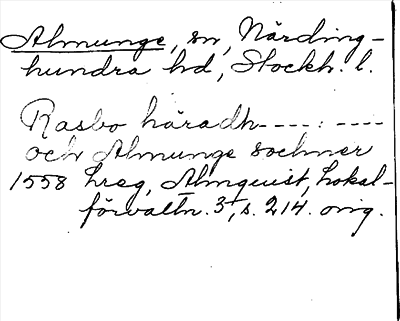 Almunge, sn, Närding-
hundra hd, Stockh. l.
Rasbo häradh----:----
och Almunge sochner
1558 hreg, Almquist, Lokal-
förvaltn. 3, s. 214. orig.